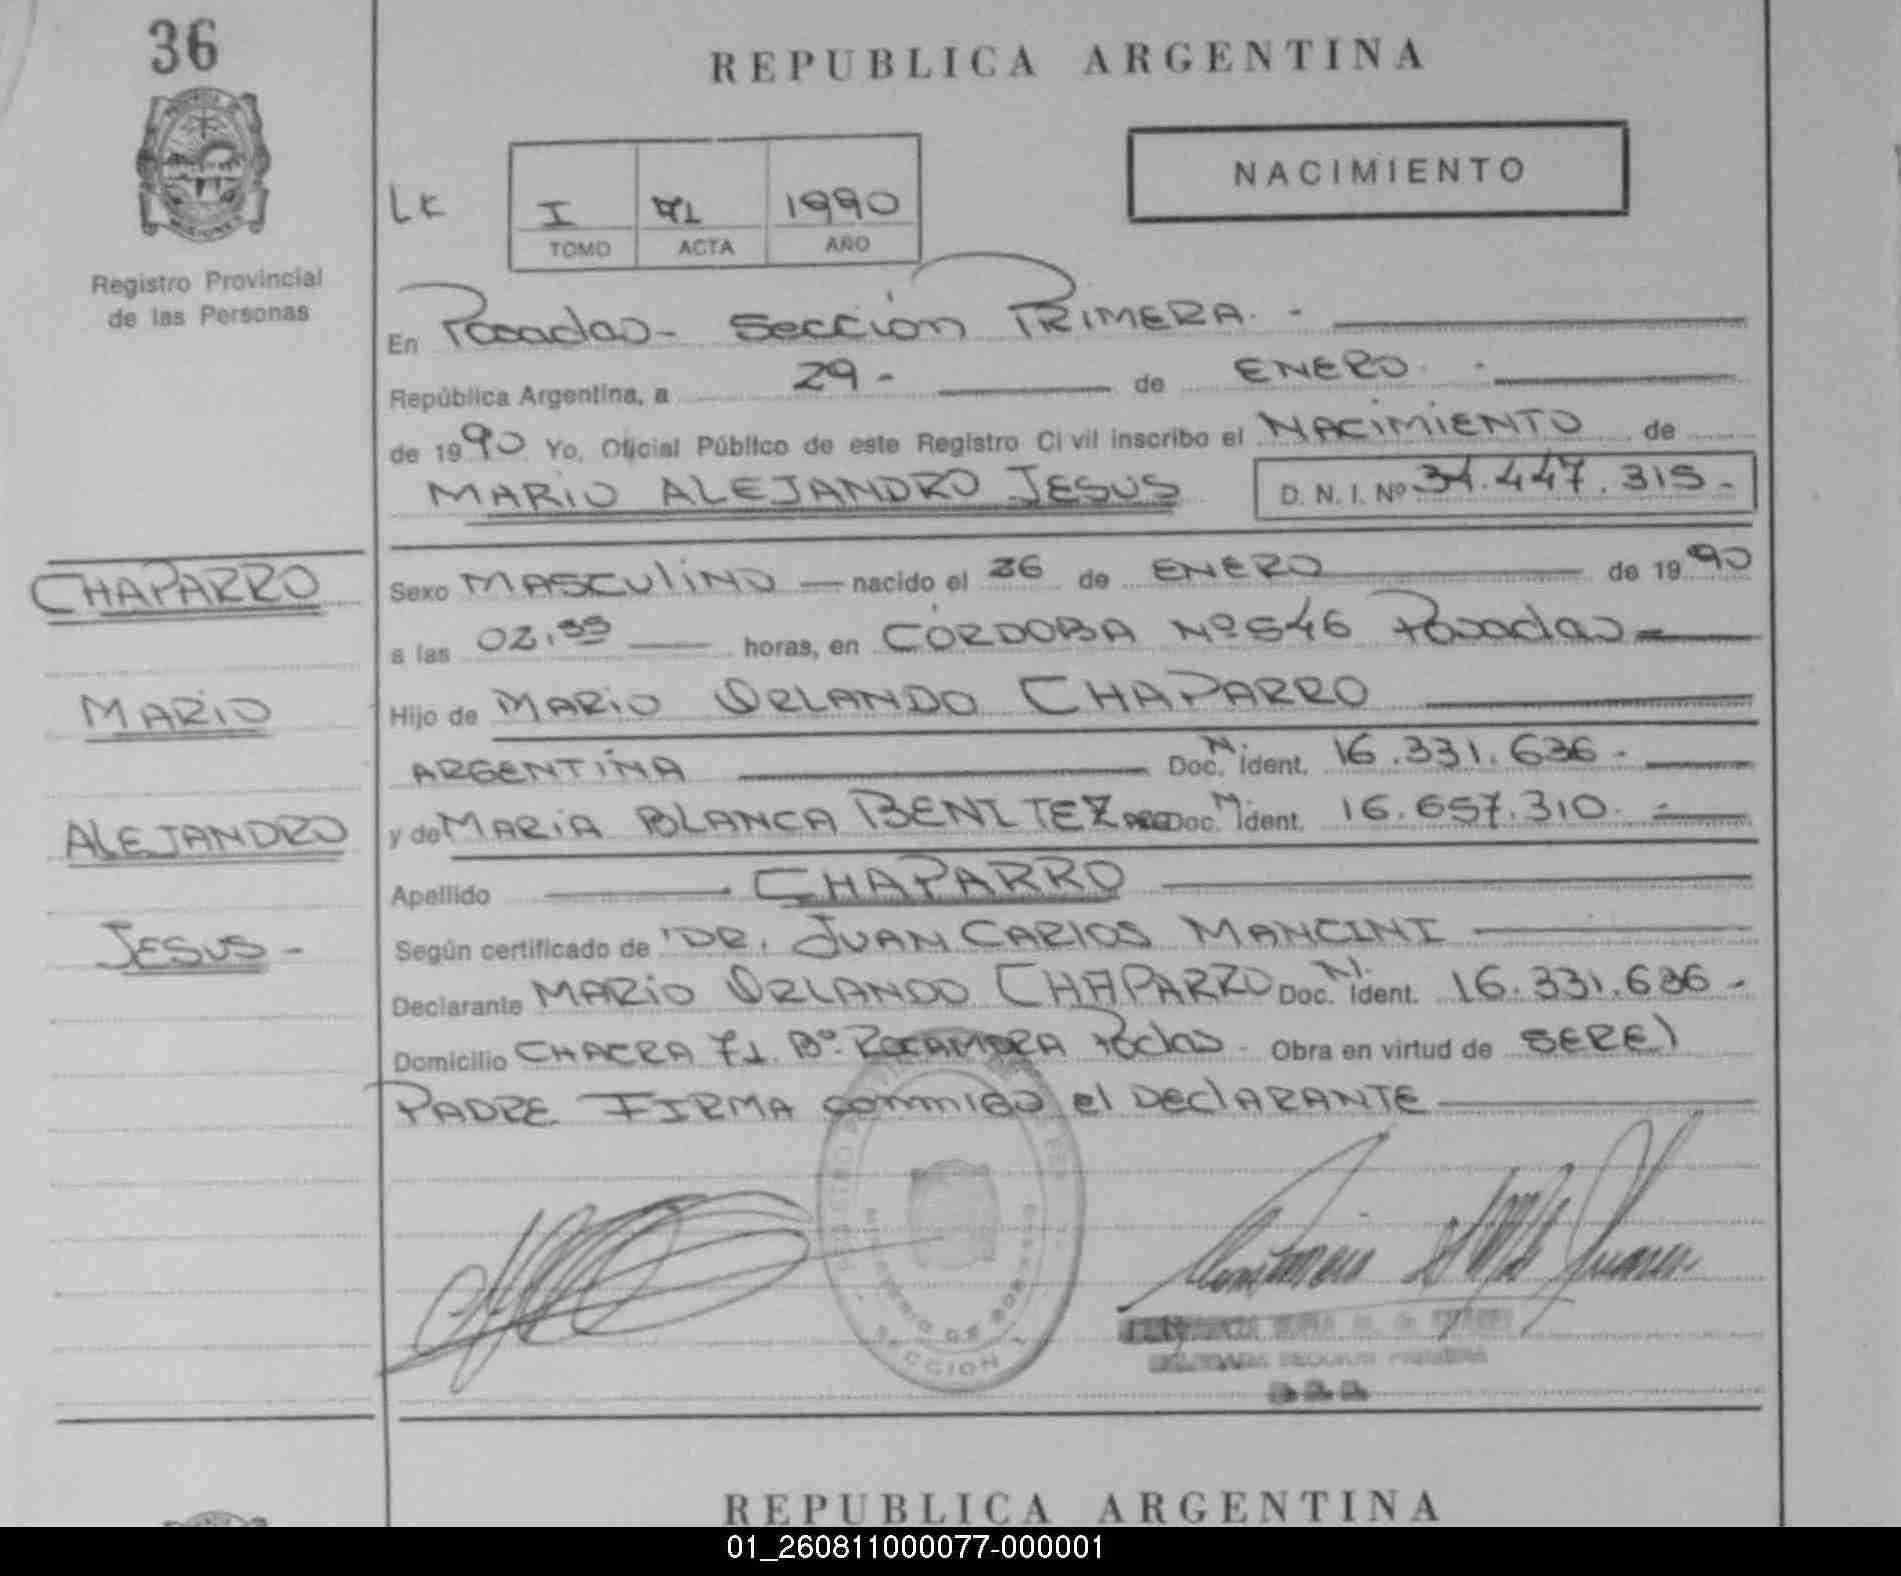 36
REPUBLICA ARGENTINA
NACIMIENTO
LK
I 71 1990
TOMO ACTA AÑO
Registro Provincial
de las Personas
En Posadas - Sección PRIMERA. -
República Argentina, a 29 - de ENERO. -
de 1990 Yo, Oficial Público de este Registro Civil inscribo el NACIMIENTO de
MARIO ALEJANDRO JESUS D. N. I. Nº 34.447.315.-
CHAPARRO
MARIO
ALEJANDRO
JESUS -
Sexo MASCULINO nacido el 26 de ENERO de 1990
a las 02.55 horas, en CÓRDOBA Nº 546 Posadas -
Hijo de MARIO ORLANDO CHAPARRO
ARGENTINA Doc. N. Ident. 16.331.636.-
y de MARIA BLANCA BENITEZ Doc. N. Ident. 16.657.310. -
Apellido CHAPARRO
Según certificado de DR. JUAN CARLOS MANCINI
Declarante MARIO ORLANDO CHAPARRO Doc. N. Ident. 16.331.636 -
Domicilio CHACRA 71. Bº. ROCAMORA Pdas - Obra en virtud de SER El
PADRE FIRMA conmigo el DEClARANTE
MINISTERIO DE GOBIERNO
SECCION 1
DELEGADA SECCION PRIMERA
REPUBLICA ARGENTINA
01_260811000077-000001